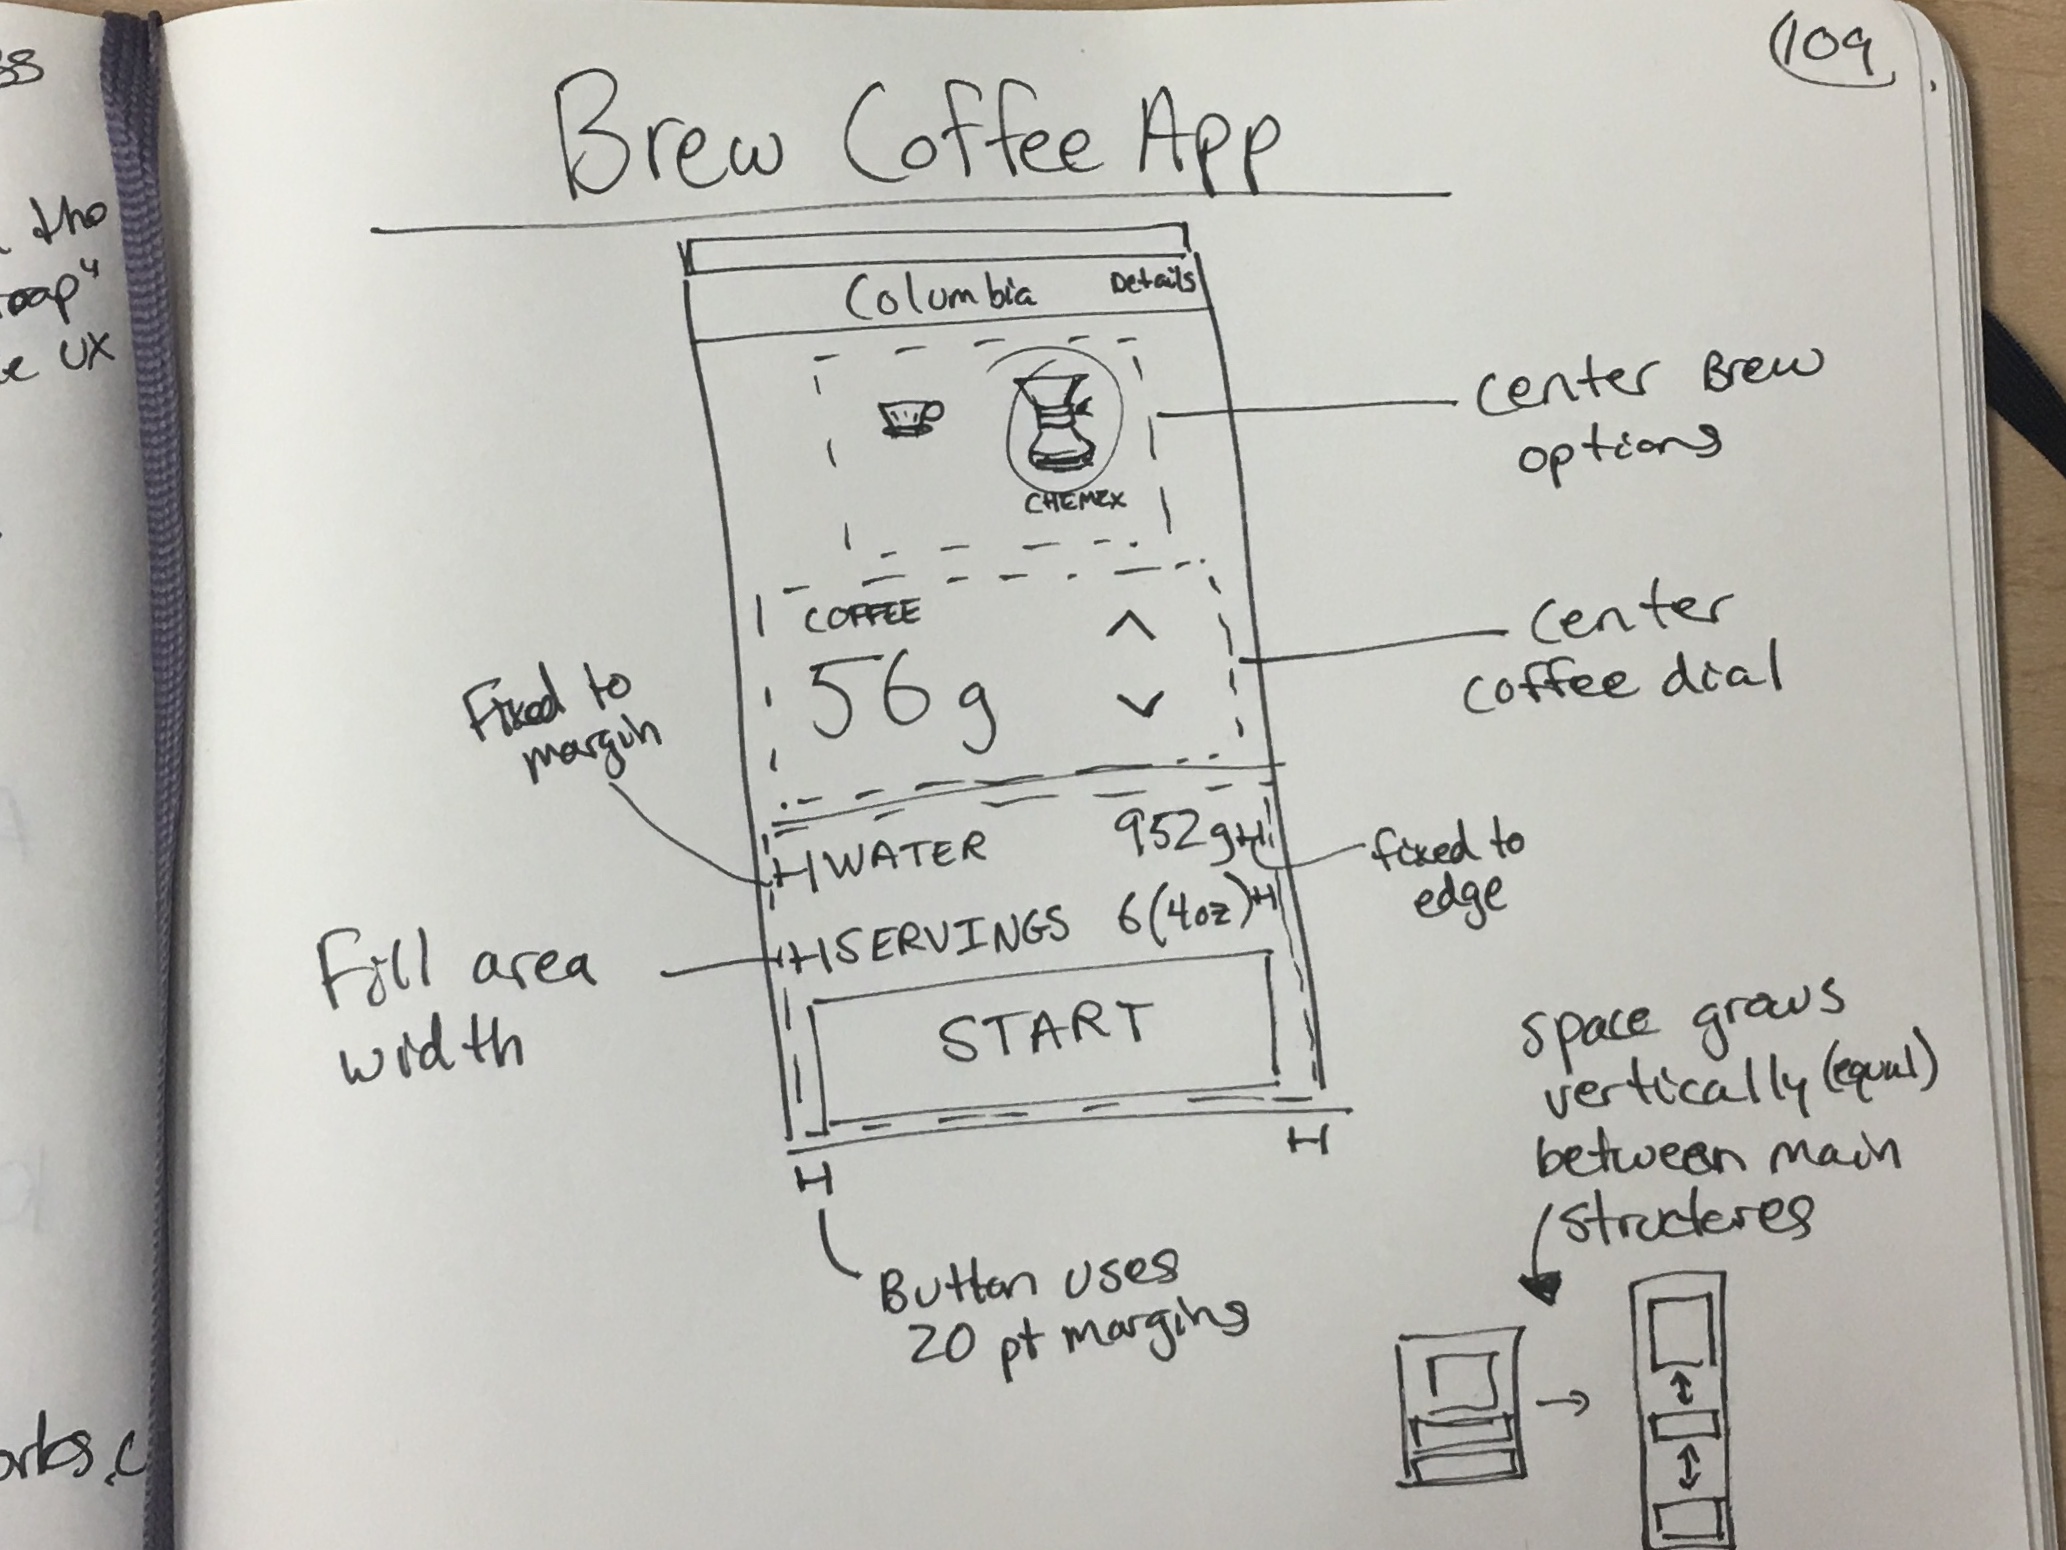 109
Brew Coffee App
Columbia Details
CHEMEX
center Brew
options
COFFEE
56g
center
coffee dial
Fixed to
margin
WATER 952g
fixed to
edge
SERVINGS 6(4oz)
Fill area
width
START
space grows
vertically (equal)
between main
structures
Button uses
20 pt margins
the
UX